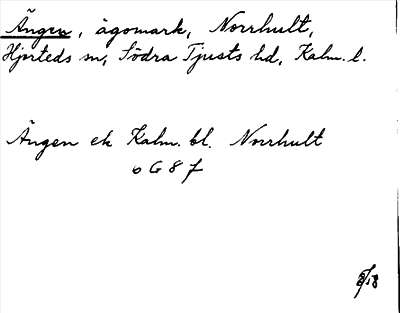 Ängen, ägomark, Norrhult,
Hjorteds sn, Södra Tjusts hd, Kalm. l.
Ängen ek Kalm. bl. Norrhult
6G8f